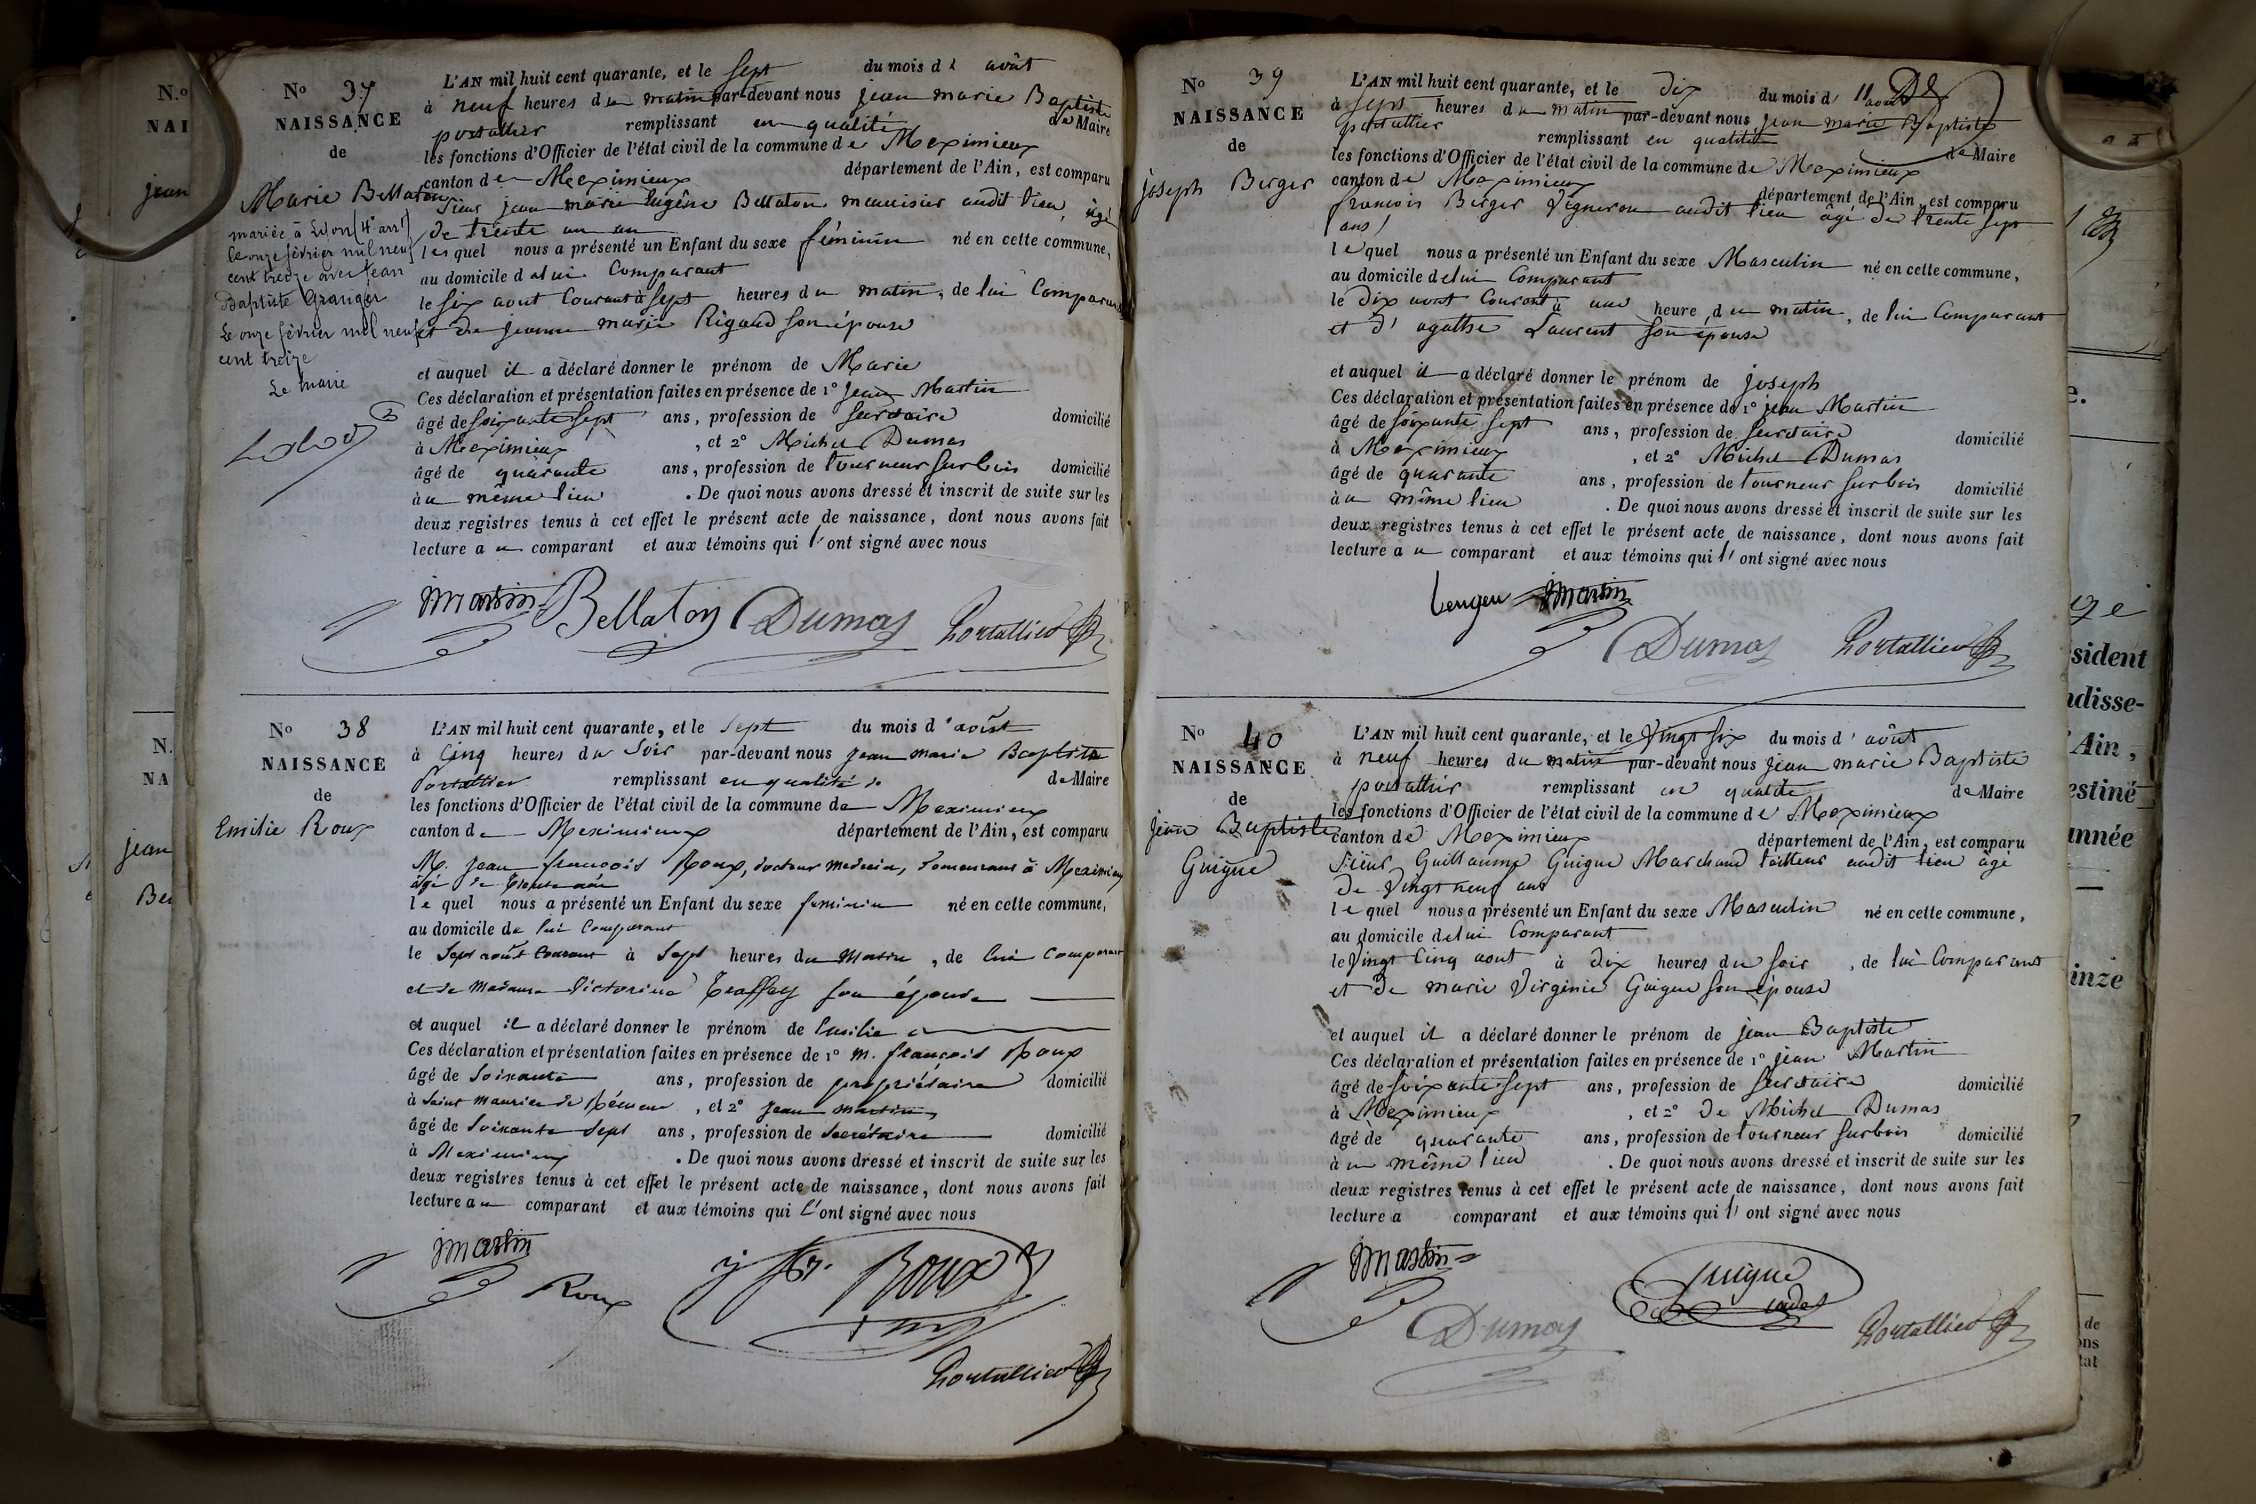 N.o
NAI
jean
N.
NA
jean
Bel
No 37
NAISSANCE
de
Marie Bellaton
mariée à Lyon (4e arrt)
le onze février mil neuf
cent treize avec Jean
Baptiste Granger
Le onze février mil neuf
cent treize
Le maire
L'AN mil huit cent quarante, et le sept du mois d août
à neuf heures du matin par-devant nous jean marie Baptiste
portallier remplissant en qualité de Maire
les fonctions d'Officier de l'état civil de la commune de Meximieux
canton de Meximieux département de l'Ain, est comparu
Sieur jean marie Eugène Bellaton menuisier audit lieu âgé
de trente un an
lequel nous a présenté un Enfant du sexe féminin né en cette commune,
au domicile de lui Comparant
le six aout Courant à sept heures du matin, de lui Comparant
et de jeanne marie Rigaud son épouse
et auquel il a déclaré donner le prénom de Marie
Ces déclaration et présentation faites en présence de 1o jean Martin
âgé de soixante sept ans, profession de secrétaire domicilié
à Meximieux, et 2o Michel Dumas
âgé de quarante ans, profession de tourneur sur bois domicilié
à u même lieu. De quoi nous avons dressé et inscrit de suite sur les
deux registres tenus à cet effet le présent acte de naissance, dont nous avons fait
lecture a u comparant et aux témoins qui l'ont signé avec nous
jmartin Bellaton Dumas Portallier
No 38
NAISSANCE
de
Emilie Roux
L'AN mil huit cent quarante, et le sept du mois d'août
à Cinq heures du Soir par-devant nous jean marie Baptiste
Portallier remplissant en qualité de Maire
les fonctions d'Officier de l'état civil de la commune de Meximieux
canton de Meximieux département de l'Ain, est comparu
M. jean françois Roux, docteur medecin, demeurant à Meximieux
âgé de trente
le quel nous a présenté un Enfant du sexe feminin né en cette commune,
au domicile de lui Comparant
le Sept août Courant à Sept heures du Matin, de lui Comparant
et de Madame Victorine Treffey son épouse
et auquel il a déclaré donner le prénom de Emilie
Ces déclaration et présentation faites en présence de 1o M. françois Roux
âgé de Soixante ans, profession de propriétaire domicilié
à Saint Maurice de Rémens, et 2o jean martin
âgé de Soixante Sept ans, profession de Secrétaire domicilié
à Meximieux. De quoi nous avons dressé et inscrit de suite sur les
deux registres tenus à cet effet le présent acte de naissance, dont nous avons fait
lecture a u comparant et aux témoins qui l'ont signé avec nous
jmartin
Roux Roux
Portallier
No 39
NAISSANCE
de
joseph Berger
L'AN mil huit cent quarante, et le dix du mois d'aout
à sept heures du matin par-devant nous jean marie Baptiste
portallier remplissant en qualité de Maire
les fonctions d'Officier de l'état civil de la commune de Meximieux
canton de Meximieux département de l'Ain, est comparu
francois Berger Vigneron audit lieu âgé de trente sept
ans
le quel nous a présenté un Enfant du sexe Masculin né en cette commune,
au domicile de lui Comparant
le Dix aout Courant à une heure du matin, de lui Comparant
et d'agathe Laurent son épouse
et auquel il a déclaré donner le prénom de joseph
Ces déclaration et présentation faites en présence de 1o jean Martin
âgé de soixante sept ans, profession de secrétaire domicilié
à Meximieux, et 2o Michel Dumas
âgé de quarante ans, profession de tourneur sur bois domicilié
à u même lieu. De quoi nous avons dressé et inscrit de suite sur les
deux registres tenus à cet effet le présent acte de naissance, dont nous avons fait
lecture a u comparant et aux témoins qui l'ont signé avec nous
jmartin
Dumas Portallier
No 40
NAISSANCE
de
jean Baptiste
Guigue
L'AN mil huit cent quarante, et le Vingt six du mois d'août
à neuf heures du matin par-devant nous jean marie Baptiste
portallier remplissant en qualité de Maire
les fonctions d'Officier de l'état civil de la commune de Meximieux
canton de Meximieux département de l'Ain, est comparu
sieur Guillaume Guigue Marchand tailleur audit lieu âgé
de Vingt neuf ans
le quel nous a présenté un Enfant du sexe Masculin né en cette commune,
au domicile de lui Comparant
le Vingt Cinq aout à dix heures du soir, de lui Comparant
et de marie Virginie Guigue son épouse
et auquel il a déclaré donner le prénom de jean Baptiste
Ces déclaration et présentation faites en présence de 1o jean Martin
âgé de soixante sept ans, profession de secrétaire domicilié
à Meximieux, et 2o de Michel Dumas
âgé de quarante ans, profession de tourneur sur bois domicilié
à u même lieu. De quoi nous avons dressé et inscrit de suite sur les
deux registres tenus à cet effet le présent acte de naissance, dont nous avons fait
lecture a comparant et aux témoins qui l'ont signé avec nous
jmartin Guigue
Dumas Portallier
e.
sident
ndisse-
'Ain,
estiné
année
inze
de
ons
tat